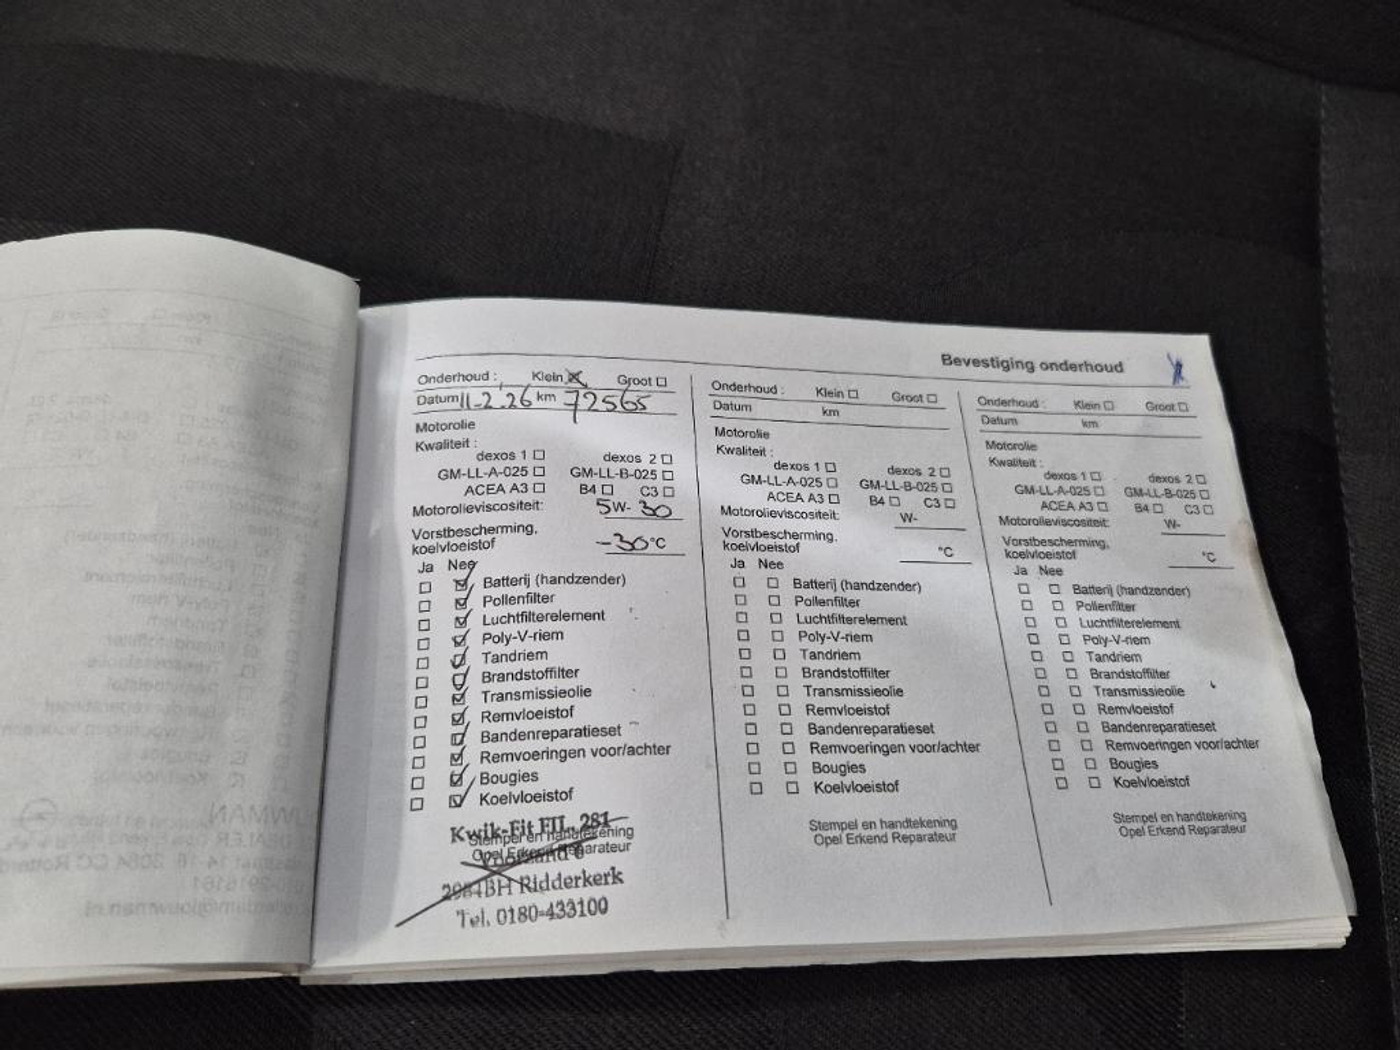 Bevestiging onderhoud
Onderhoud : Klein Groot
Datum 11-2-26 km 72565
Motorolie
Kwaliteit :
dexos 1 dexos 2
GM-LL-A-025 GM-LL-B-025
ACEA A3 B4 C3
Motorolieviscositeit: 5W-30
Vorstbescherming,
koelvloeistof -30°C
Ja Nee
Batterij (handzender)
Pollenfilter
Luchtfilterelement
Poly-V-riem
Tandriem
Brandstoffilter
Transmissieolie
Remvloeistof
Bandenreparatieset
Remvoeringen voor/achter
Bougies
Koelvloeistof
Kwik-Fit Fil. 281
Stempel en handtekening
Opel Erkend Reparateur
2984BH Ridderkerk
Tel. 0180-433100
Onderhoud : Klein Groot
Datum km
Motorolie
Kwaliteit :
dexos 1 dexos 2
GM-LL-A-025 GM-LL-B-025
ACEA A3 B4 C3
Motorolieviscositeit: W-
Vorstbescherming,
koelvloeistof °C
Ja Nee
Batterij (handzender)
Pollenfilter
Luchtfilterelement
Poly-V-riem
Tandriem
Brandstoffilter
Transmissieolie
Remvloeistof
Bandenreparatieset
Remvoeringen voor/achter
Bougies
Koelvloeistof
Stempel en handtekening
Opel Erkend Reparateur
Onderhoud : Klein Groot
Datum km
Motorolie
Kwaliteit :
dexos 1 dexos 2
GM-LL-A-025 GM-LL-B-025
ACEA A3 B4 C3
Motorolieviscositeit: W-
Vorstbescherming,
koelvloeistof °C
Ja Nee
Batterij (handzender)
Pollenfilter
Luchtfilterelement
Poly-V-riem
Tandriem
Brandstoffilter
Transmissieolie
Remvloeistof
Bandenreparatieset
Remvoeringen voor/achter
Bougies
Koelvloeistof
Stempel en handtekening
Opel Erkend Reparateur